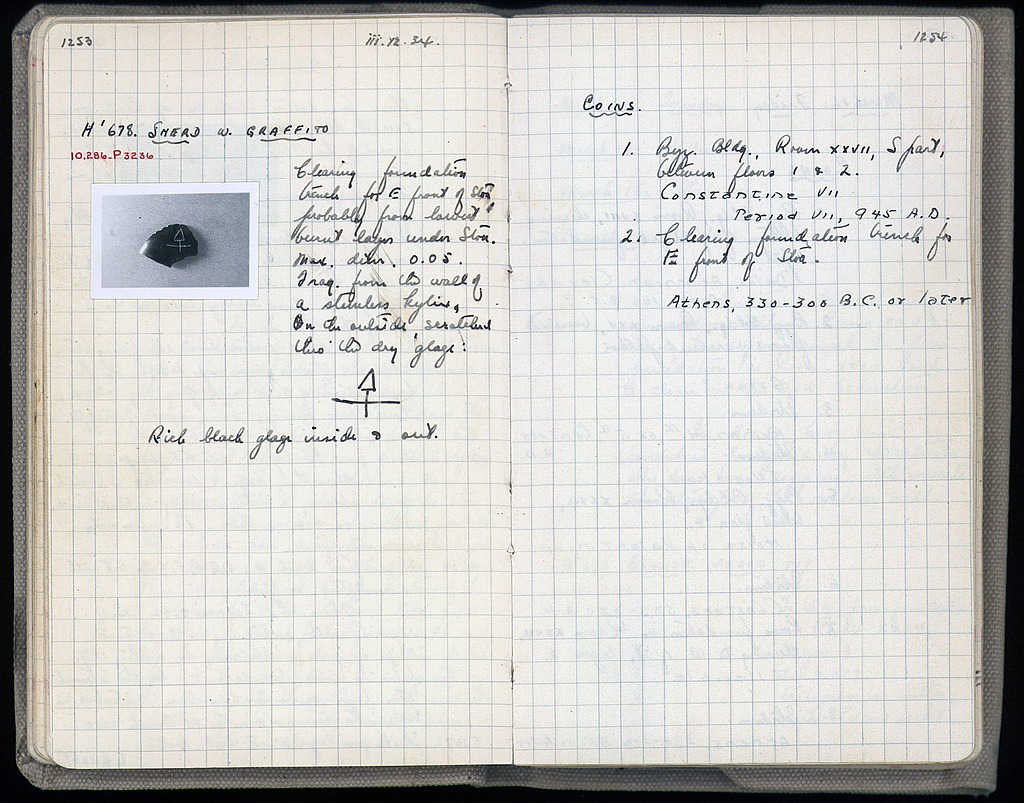 1253
iii.12.34.
H'678. SHERD w. GRAFFITO
10.286-P3236
Clearing foundation
trench for E front of Stoa,
probably from lowest
burnt layer under Stoa.
Max. dim. 0.05.
Frag. from the wall of
a stemless kylix,
On the outside scratched
thro' the dry glaze:
Rich black glaze inside & out.
1254
COINS.
1. Byz. Bldg., Room XXVII, S part,
between floors 1 & 2.
Constantine VII
Period VII, 945 A.D.
2. Clearing foundation trench for
E front of Stoa.
Athens, 330-300 B.C. or later